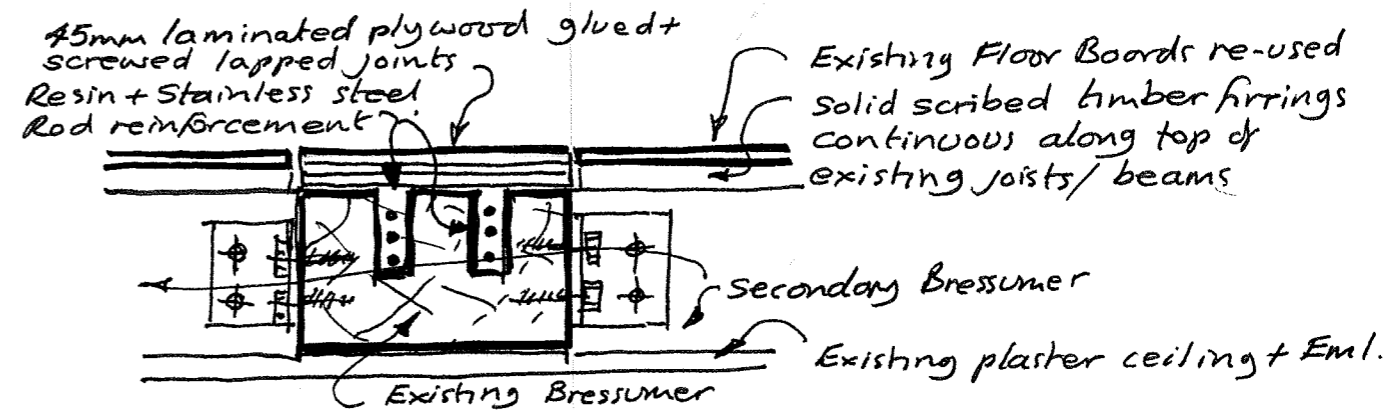 45mm laminated plywood glued+
screwed lapped joints
Resin + Stainless steel
Rod reinforcement
Existing Floor Boards re-used
Solid scribed timber firrings
continuous along top of
existing joists/ beams
Secondary Bressumer
Existing plaster ceiling + Eml.
Existing Bressumer